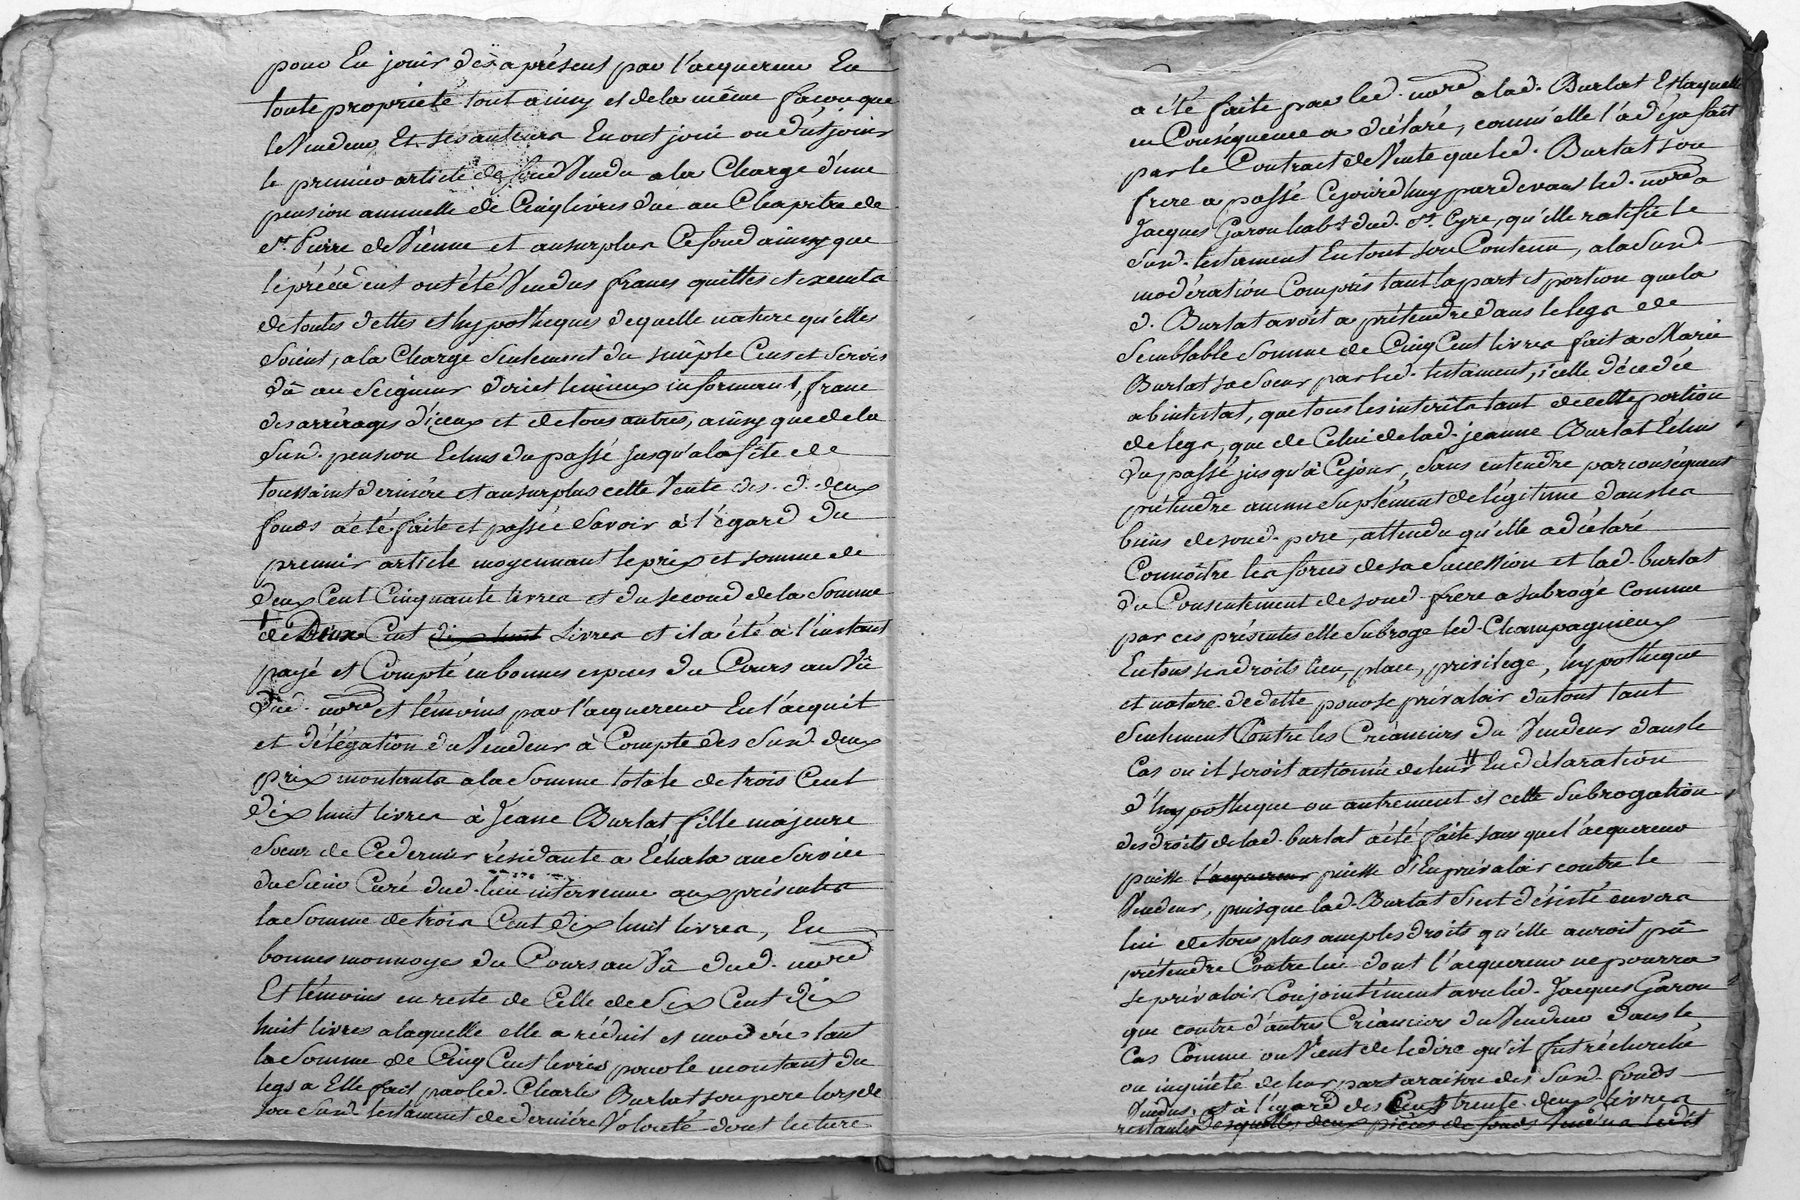 pour En jouir dès aprésent par l'acquereur En
toute propriété tout ainsy et de la même façon que
le Vendeur Et ses auteurs En ont joui ou dût joüir
le premier article de fond Vendu a la Charge d'une
pension annuelle de Cinq livres düe au Chapitre de
st. Pierre de Vienne et au surplus Ce fond ainsy que
le précédent ont été Vendus francs quittes et exempts
de toutes dettes et hypotheques de quelle nature qu'elles
Soient, a la Charge Seulement du simple Cens et Servis
dû au Seigneur direct le mieux informant, franc
des arrérages d'iceux et de tous autres, ainsy que de la
Sud. pension Echus du passé jusqu'a la fête de
toussaint derniére et au surplus cette Vente des. d. deux
fonds a été faite et passée Savoir à l'égard du
premier article moyennant le prix et somme de
deux Cent Cinquante livres et du second de la Somme
de Deux Cent dix huit Livres et il a été à l'instant
payé et Compté en bonnes espèces du Cours au Vû
dud. nore et témoins par l'acquereur En l'acquit
et délégation du Vendeur à Compte des Sud. deux
prix montants a la Somme totale de trois Cent
dix huit livres à Jeane Burlat fille majeure
Soeur de Ce dernier résidante a Echalas au Service
du Sieur Curé dud. lieu intervenue aux présentes
la Somme de trois Cent dix huit livres, En
bonnes monnoyes du Cours au Vû dud. nore
Et témoins en reste de Celle de Six Cent dix
huit livres a laquelle elle a réduit et modéré tant
la Somme de Cinq Cent livres pour le montant du
legs a Elle fait par led. Charles Burlat son pere lors de
son Sud. testament de derniére Volonté dont lecture
a été faite par led. nore a lad. Burlat Et laquelle
en Conséquence a déclaré, comm'elle l'a déja fait
par le Contract de Vente que led. Burlat son
frere a passé Cejourd'huy pardevant led. nore a
Jacques Garon habt. dud. st. Cyre, qu'elle ratifie le
Sud. testament En tout son Contenu, a la Sud.
modération Compris tant la part et portion que la
d. Burlat avoit a prétendre dans le legs de
Semblable Somme de Cinq Cent livres fait a Marie
Burlat sa Soeur par led. testament, icelle décédée
ab intestat, que tous les interêts tant de cette portion
de legs, que de Celui de lad. jeanne Burlat Echus
du passé jusqu'à Cejour, Sans entendre par conséquent
prétendre aucun Suplément de légitime dans les
biens de soud. pere, attendu qu'elle a déclaré
Connoître les forces de sa Succession et lad. burlat
du Consentement de soud. frere a subrogé comme
par ces présentes elle Subroge led. Champagnieux
En tous ses droits lieu, place, privilege, hypotheque
et nature de dette pour se prévaloir du tout tant
Seulement Contre les Créanciers du Vendeur dans le
Cas ou il seroit actionné de leur # En déclaration
d'hypotheque ou autrement et cette Subrogation
des droits de lad. burlat a été faite sans que l'acquereur
puisse l'acquereur puisse s'En prévaloir contre le
Vendeur, puisque lad. Burlat s'est désisté envers
lui de tous plus amples droits qu'elle auroit pû
prétendre Contre lui dont l'acquereur ne pourra
se prévaloir Conjointément avec led. Jacques Garon
que contre d'autres Créanciers du Vendeur dans le
Cas Comme on Vient de le dire qu'il fut récherché
ou inquiété de leur part a raison des Sud. fonds
Vendus, et à l'égard des Cent trente deux livres
restantes desquelles deux pièces de fonds Vendus ledit